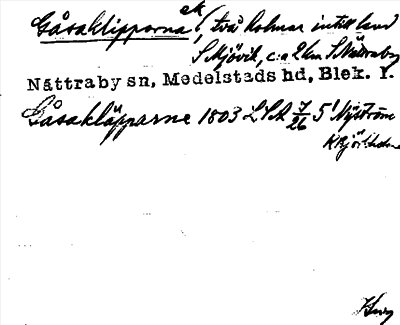 Gåsaklipporna ak (två holmar intill land
S Mjövik, c:a 2 km S Nättraby
Nättraby sn, Medelstads hd, Blek. l.
Gåsakläpparne 1803 LSA 7/26 5 Nyström